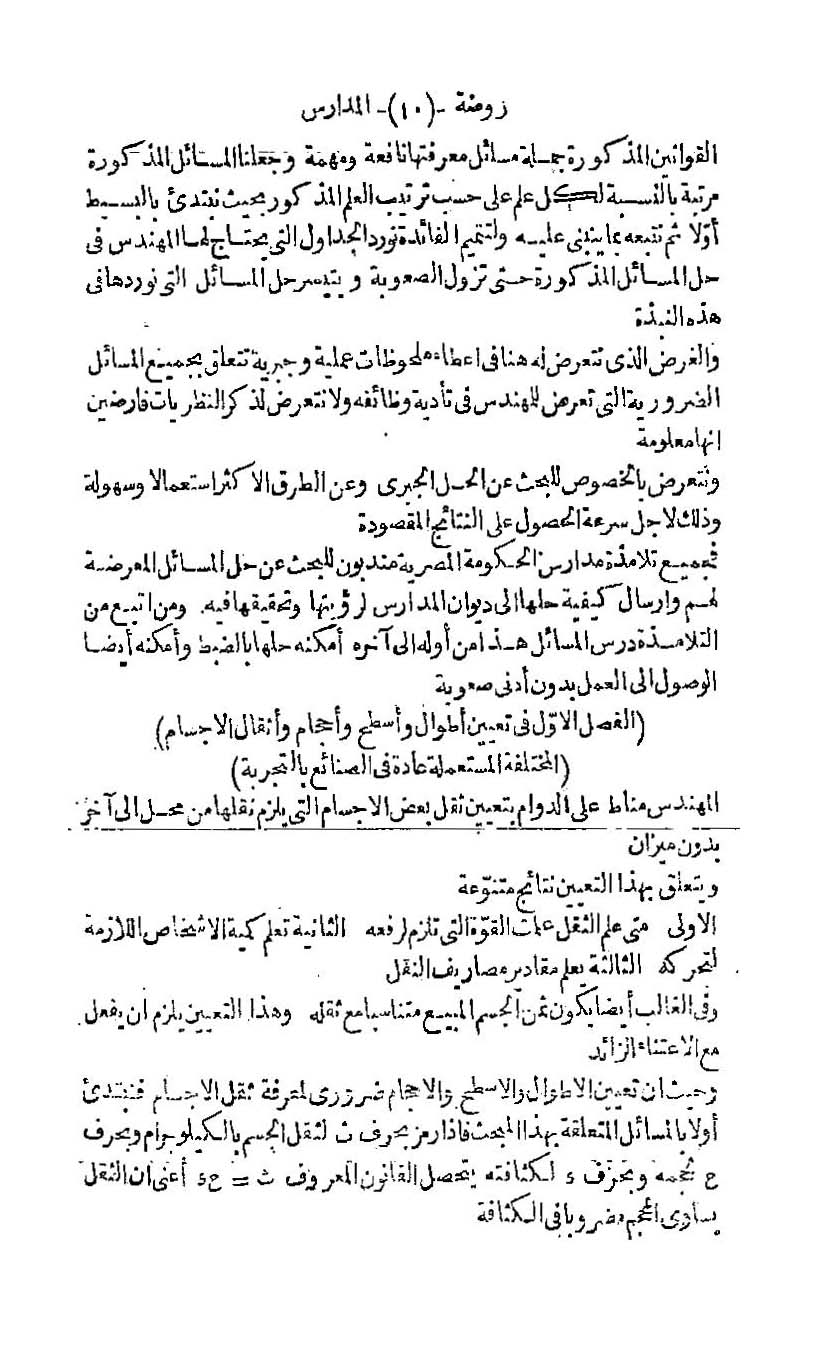 روضة -(١٠)- المدارس
القوانين المذكورة جملة مسائل معرفتها نافعة ومهمة وجعلنا المسائل المذكورة
مرتبة بالنسبة لكل علم على حسب ترتيب العلم المذكور بحيث نبتدئ بالبسيط
أوّلا ثم نتبعه بما ينبنى عليه ولتتميم الفائدة نورد الجداول التى يحتاج لها المهندس فى
حل المسائل المذكورة حتى تزول الصعوبة ويتيسر حل المسائل التى نوردها فى
هذه النبذة
والغرض الذى نتعرض له هنا فى اعطاء ملحوظات عملية وجبرية تتعلق بجميع المسائل
الضرورية التى تعرض للمهندس فى تأدية وظائفه ولا نتعرض لذكر النظريات فارضين
انها معلومة
ونتعرض بالخصوص للبحث عن الحل الجبرى وعن الطرق الاكثر استعمالا وسهولة
وذلك لاجل سرعة الحصول على النتائج المقصودة
فجميع تلامذة مدارس الحكومة المصرية مندبون للبحث عن حل المسائل المعرضة
لهم وارسال كيفية حلها الى ديوان المدارس لرؤيتها وتحقيقها فيه. ومن اتبع من
التلامذة درس المسائل هذا من أوله الى آخره أمكنه حلها بالضبط وأمكنه أيضا
الوصول الى العمل بدون أدنى صعوبة
(الفصل الاوّل فى تعيين أطوال وأسطح وأحجام وأثقال الاجسام)
(المختلفة المستعملة عادة فى الصنائع بالتجربة)
المهندس مناط على الدوام بتعيين ثقل بعض الاجسام التى يلزم نقلها من محل الى آخر
بدون ميزان
ويتعلق بهذا التعيين نتائج متنوّعة
الاولى متى علم الثقل علمت القوّة التى تلزم لرفعه الثانية تعلم كمية الاشخاص اللازمة
لتحركه الثالثة يعلم مقادير مصاريف النقل
وفى الغالب أيضا يكون ثمن الجسم المبيع متناسبا مع ثقله وهذا التعيين يلزم ان يفعل
مع الاعتناء الزائد
وحيث ان تعيين الاطوال والاسطح والاحجام ضرورى لمعرفة ثقل الاجسام فنبتدئ
أولا بالمسائل المتعلقة بهذا المبحث فاذا رمز بحرف ث لثقل الجسم بالكيلوجرام وبحرف
ح لحجمه وبحرف ء لكثافته يتحصل القانون المعروف ث = حء أعنى ان الثقل
يساوى الحجم مضروبا فى الكثافة